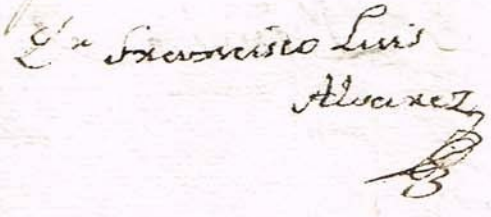 Dn Francisco Luis
Alvarez